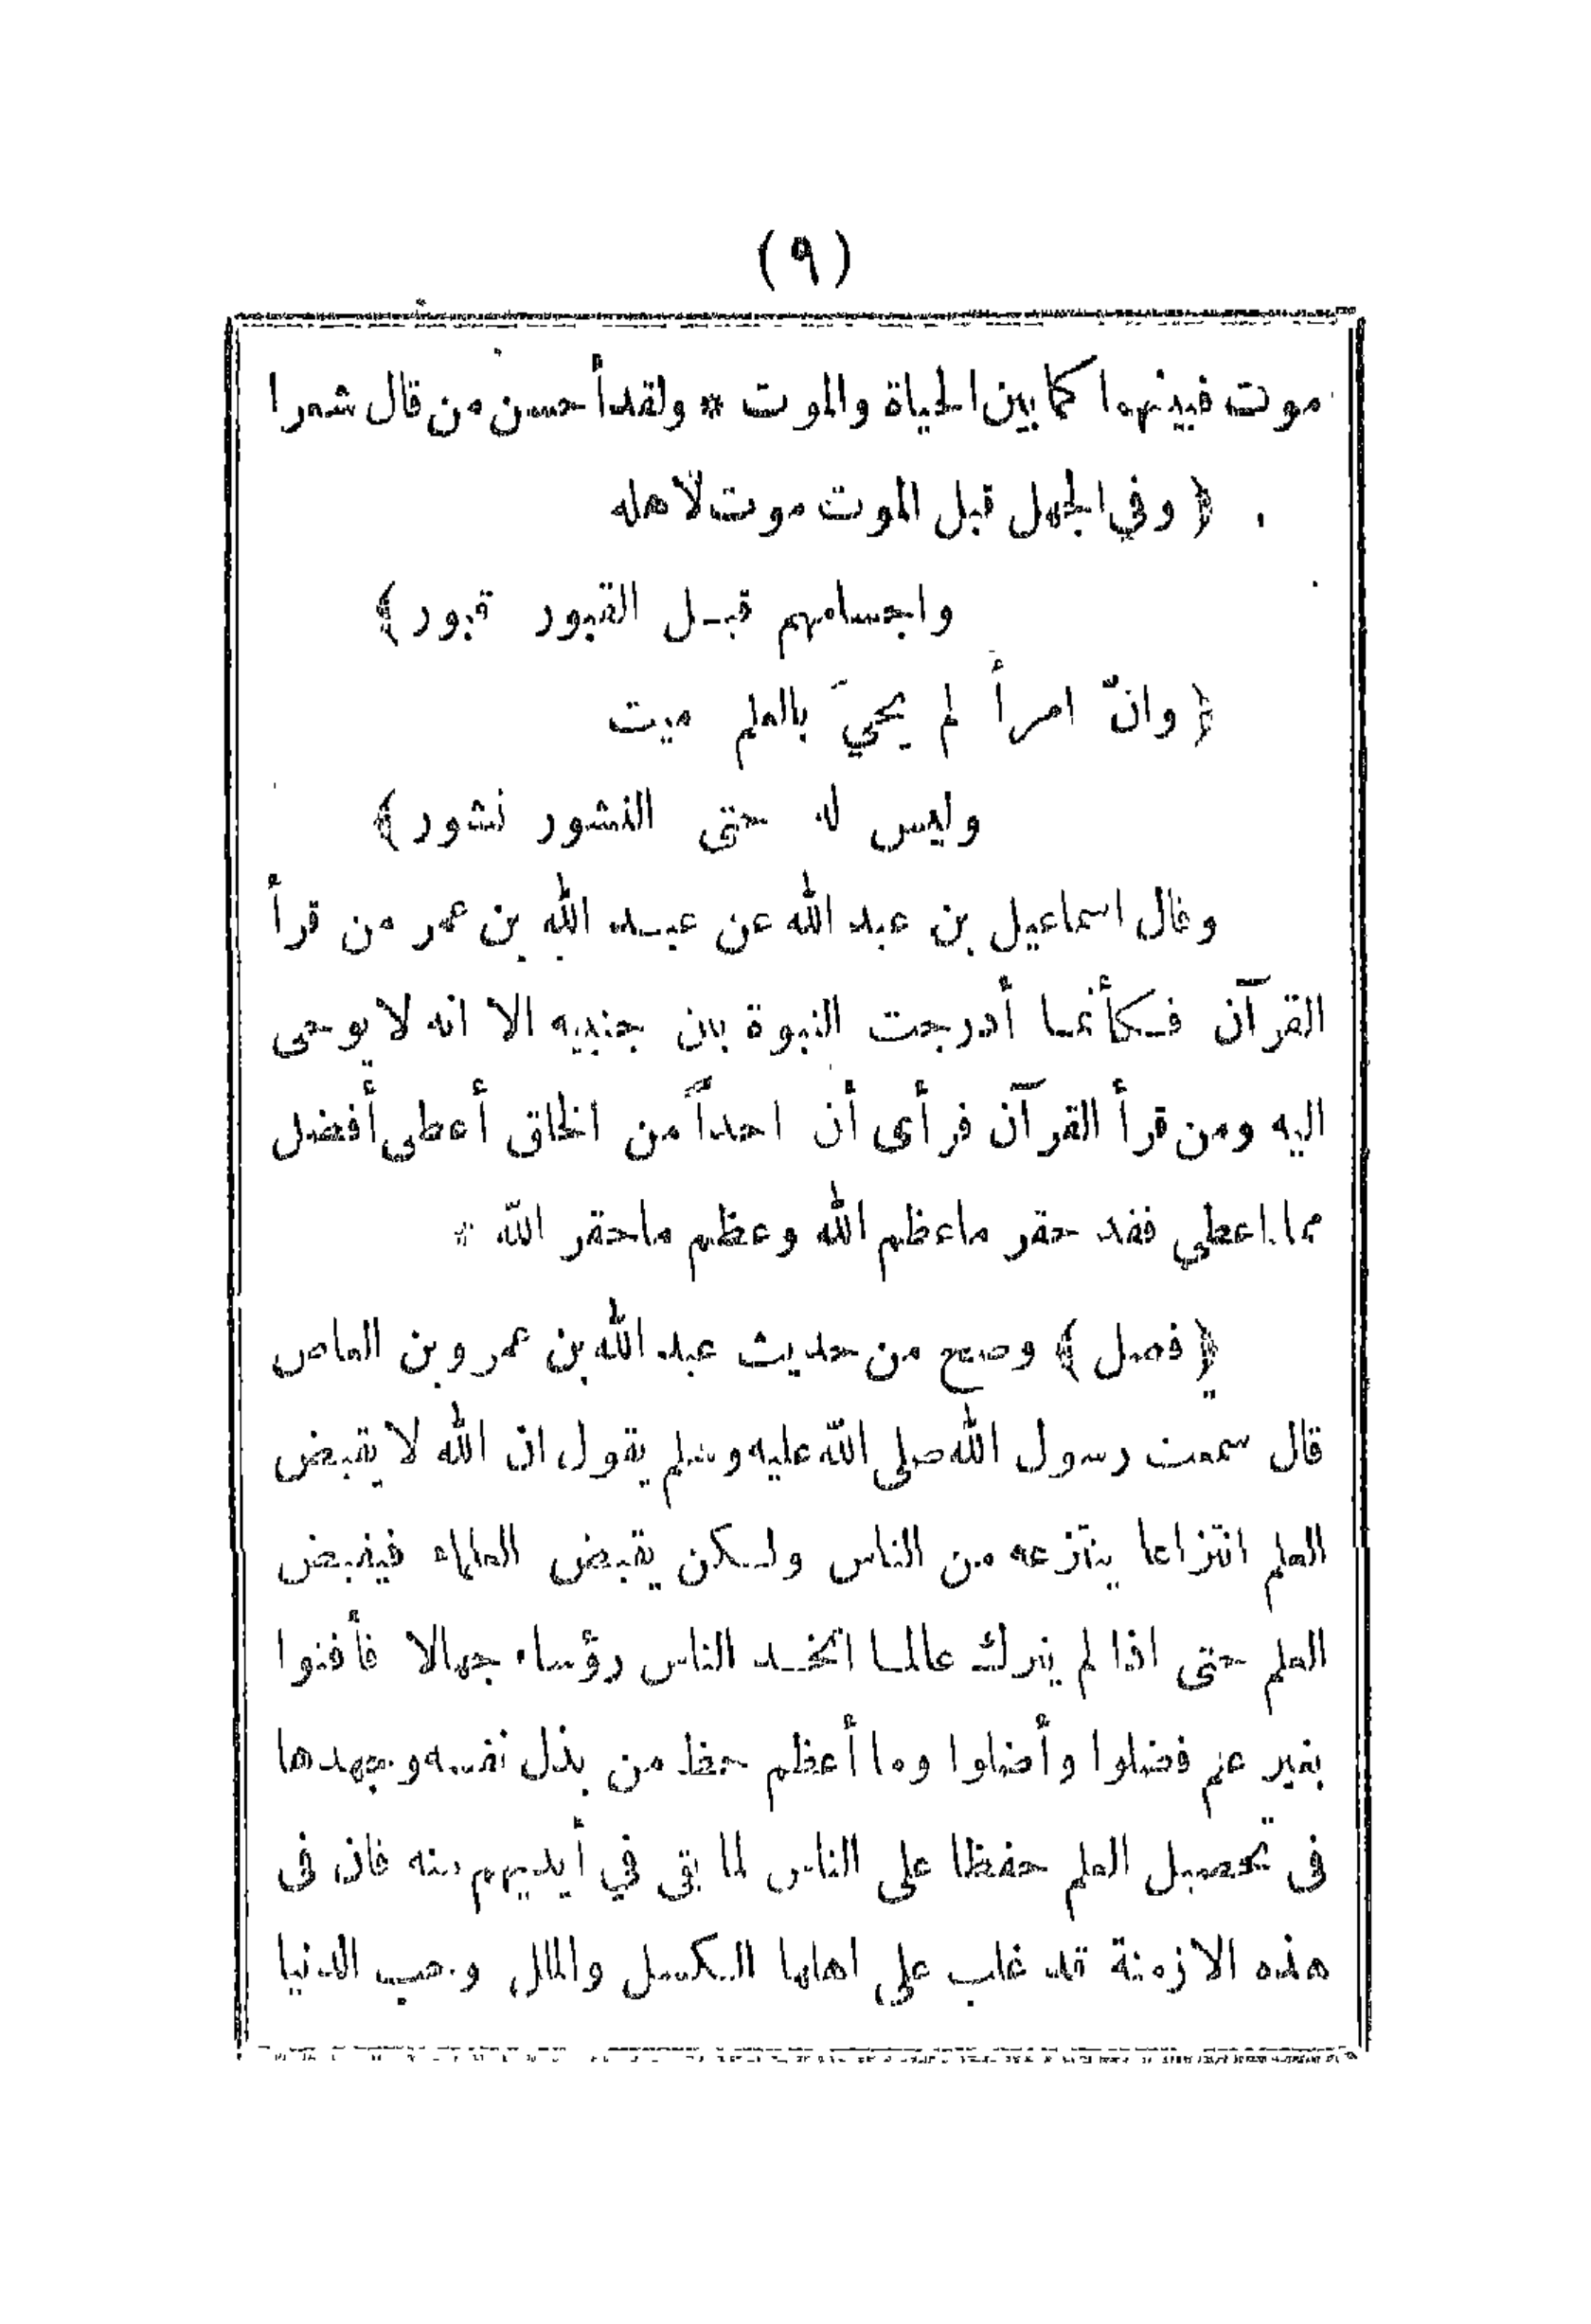 (٩)
موت فبينهما كما بين الحياة والموت * ولقد أحسن من قال شعرا
﴿ وفي الجهل قبل الموت موت لأهله
واجسامهم قبل القبور قبور ﴾
﴿ وانّ امرأ لم يحيَ بالعلم ميت
وليس له حتى النشور نشور ﴾
وقال اسماعيل بن عبد الله عن عبد الله بن عمر من قرأ
القرآن فكأنما أدرجت النبوة بين جنبيه الا انه لا يوحى
اليه ومن قرأ القرآن فرأى أن احداً من الخلق أعطى أفضل
مما اعطي فقد حقر ماعظم الله وعظم ماحقر الله *
﴿ فصل ﴾ وصح من حديث عبد الله بن عمرو بن العاص
قال سمعت رسول الله صلى الله عليه وسلم يقول ان الله لا يقبض
العلم انتزاعا ينتزعه من الناس ولكن يقبض العلماء فيقبض
العلم حتى اذا لم يترك عالما اتخذ الناس رؤساء جهالا فأفتوا
بغير علم فضلوا وأضلوا وما أعظم حظ من بذل نفسه وجهدها
فى تحصيل العلم حفظا على الناس لما بقى في أيديهم منه فان فى
هذه الازمنة قد غلب على اهلها الكسل والملل وحب الدنيا